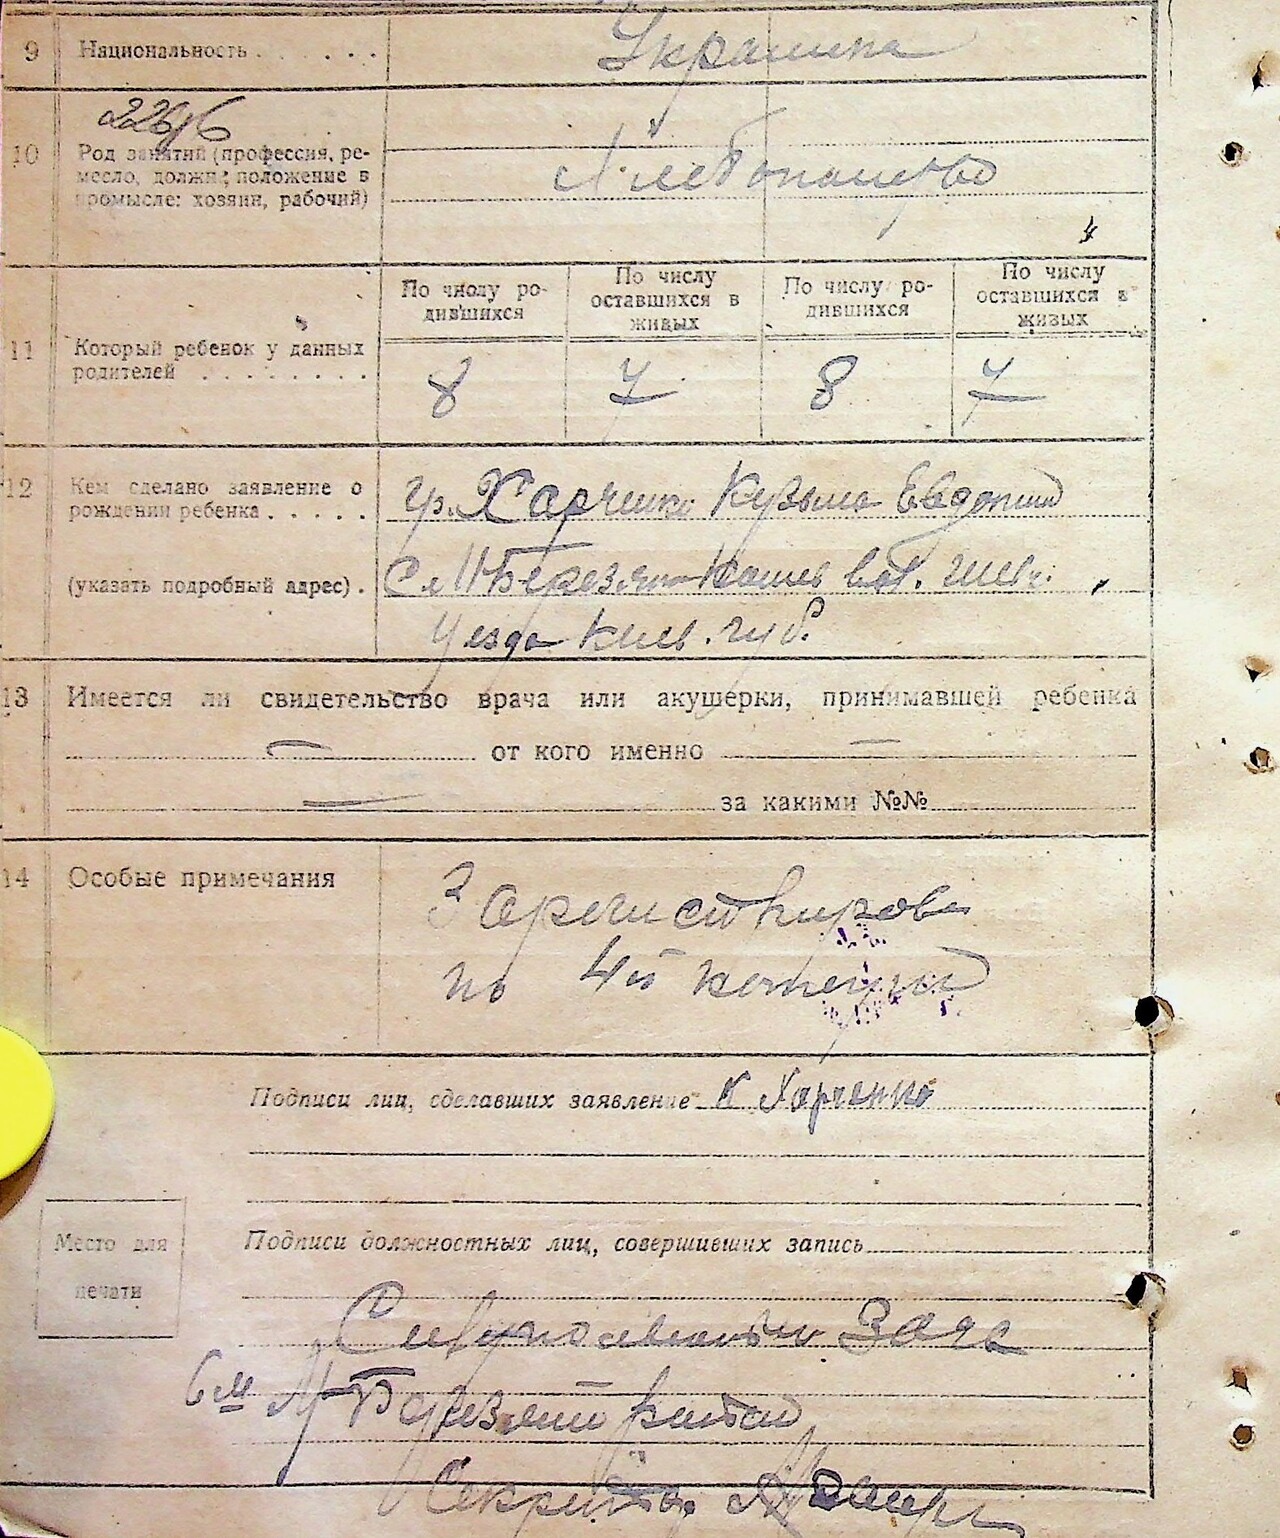 9 Национальность . . . . . . Украинка
10 Род занятий (профессия, ре-
месло, должн; положение в
промысле: хозяин, рабочий)
Хлебопашество
По числу ро-
дившихся
По числу
оставшихся в
живых
По числу ро-
дившихся
По числу
оставшихся в
живых
11 Который ребенок у данных
родителей . . . . . . . .
8 7 8 7
12 Кем сделано заявление о
рождении ребенка . . . . .
гр. Харченко Кузьма Евдоким
(указать подробный адрес) .
уезда Киев. губ.
13 Имеется ли свидетельство врача или акушерки, принимавшей ребенка
— от кого именно —
— за какими №№
14 Особые примечания
Зарегистрирова
по 4й категории
Подписи лиц, сделавших заявление К Харченко
Подписи должностных лиц, совершивших запись
Место для
печати
Зага
Секретар